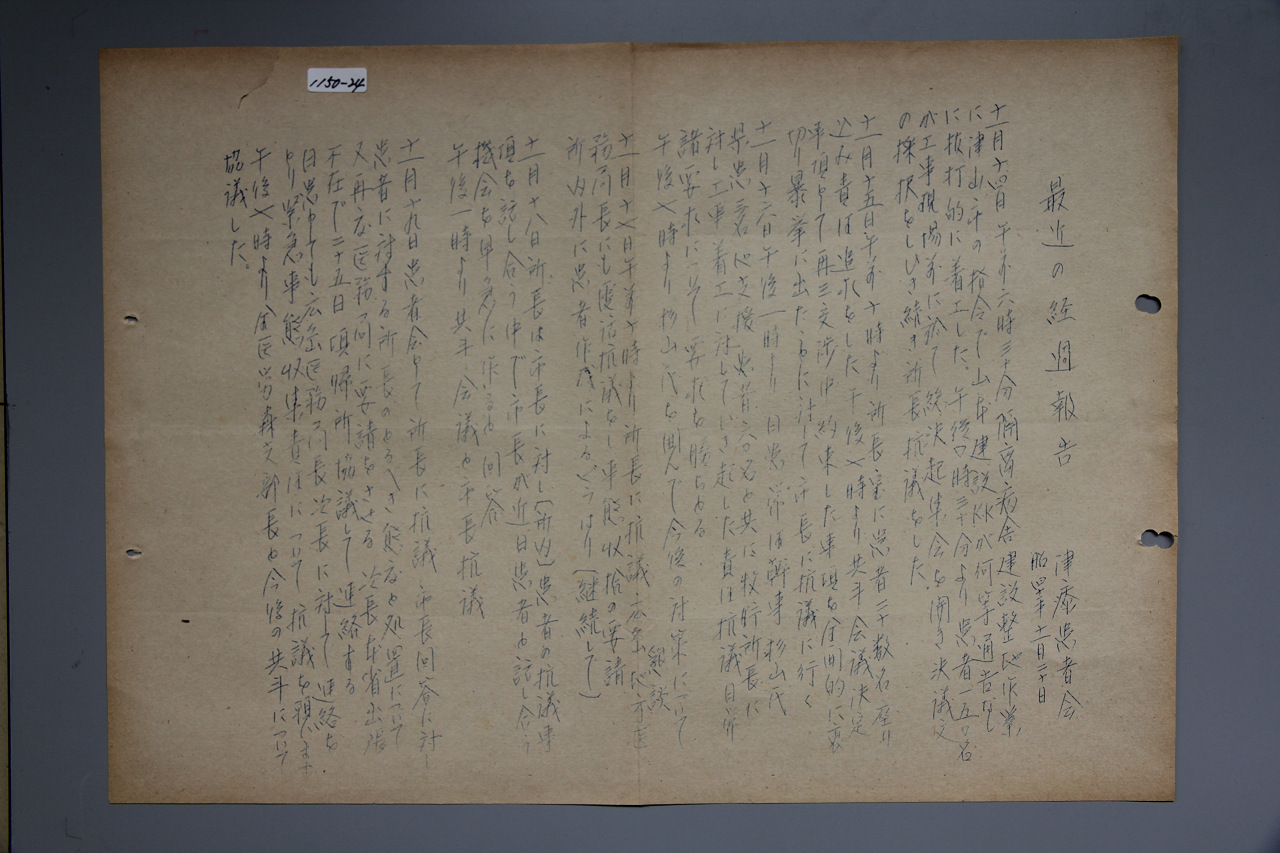 1150-24
最近の経過報告
津療患者会
昭四十年十一月二十日
十一月十四日午前六時三十分 病舎建設整地作業
に津山市の指令で山本建設KKが何等通告なし
に抜打的に着工した。午後 時三十分より患者一五〇名
が工事現場前に於て総決起集会を開き決議文
の採択をしひき続き所長抗議をした
十一月十五日午前十時より所長室に患者二十数名座り
込み責任追求をした 午後 時より共斗会議決定
事項 て再三交渉中約束した事項を全面的に裏
切り暴挙に出た に対して市長に抗議に行く
十一月十六日午後一時より日患 幹事杉山氏
県患三名他支援患者 名と共に牧野所長に
対し工事着工に対して 起した責任抗議
諸要求について要求を
午後 時より杉山氏を囲んで今後の対策について懇談
十一月十 日午前十時より所長に抗議 広島地方医
務局長にも電話抗議をし事態収拾の要請
所内外に患者作成によるビラはり〔継続して〕
十一月十八日所長は市長に対し〔所内〕患者の抗議事
項を話し合う中で市長が近日患者と話し合う
機会を早急に作ると回答
午後一時より共斗会議と市長抗議
十一月十九日患者会 て所長に抗議 市長回答に対し
患者に対する所長のとるべき態度と処置について
又再度医務局に要請をさせる 次長本省出張
不在で二十五日頃帰所協議して連絡する
日患 ても広島医務局長次長に対して連絡を
とり緊急事態収集責任について抗議を頼
午後 時より全医労 支部長と今後の共斗について
協議した。